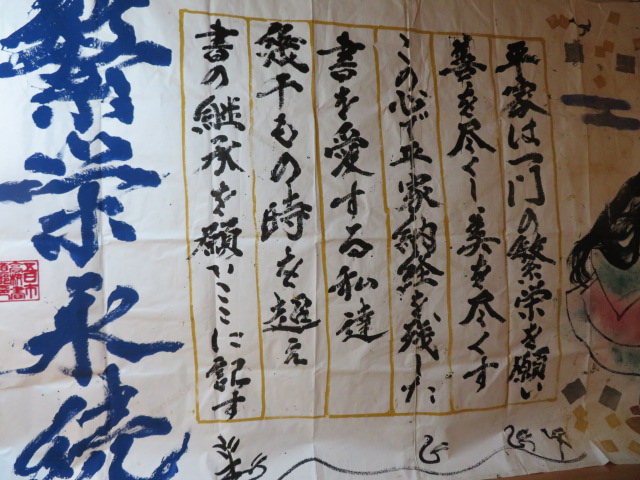 平家は一門の繁栄を願い
善を尽くし美を尽くす
この心で平家納経を残した
書を愛する私達
幾千もの時を超え
書の継承を願いここに記す
繁栄永続